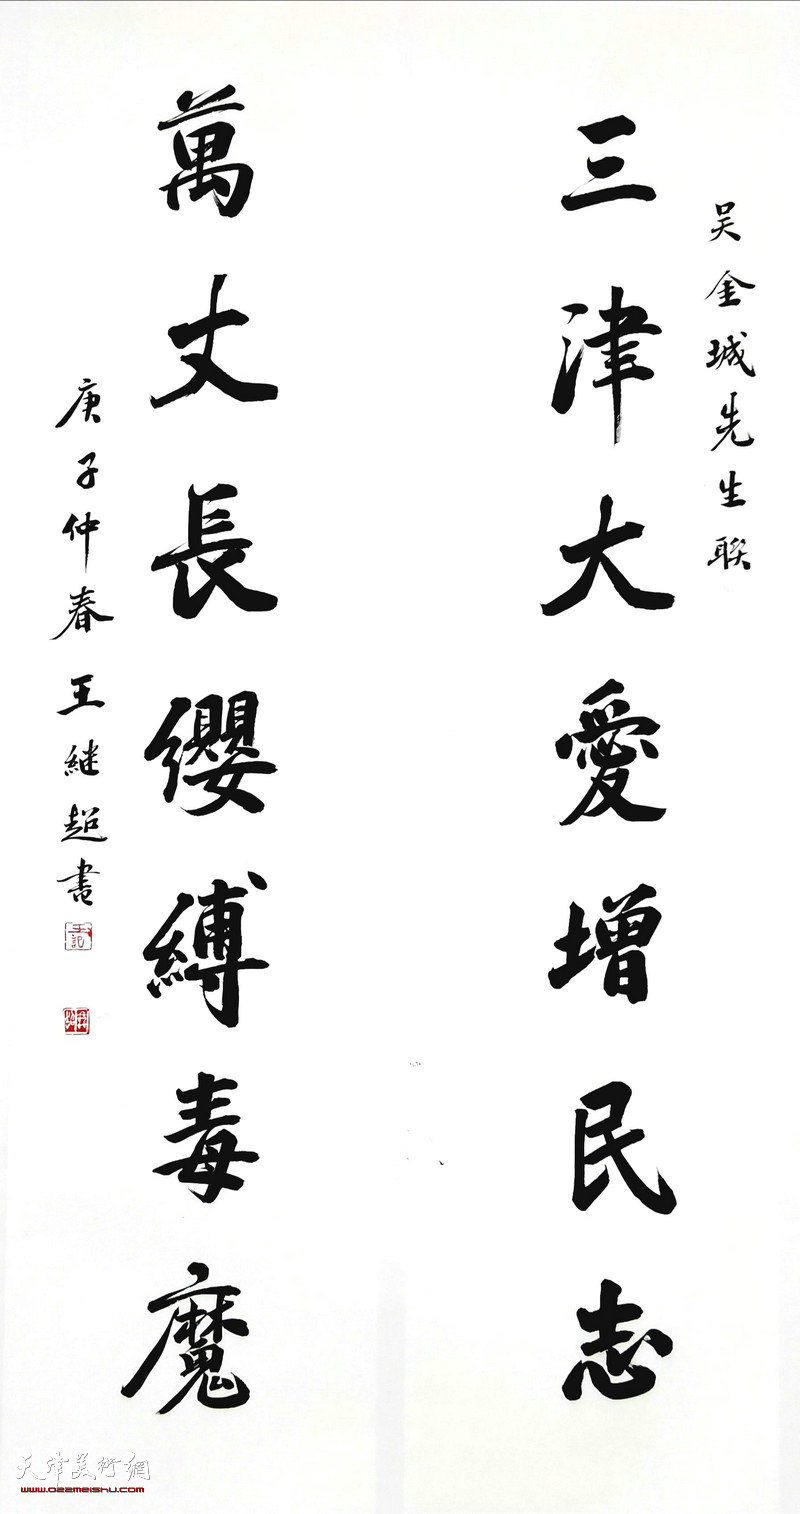 吴金城先生联
三津大愛增民志
萬丈長纓縛毒魔
庚子仲春王继超書
天津美術網
www.022meishu.com